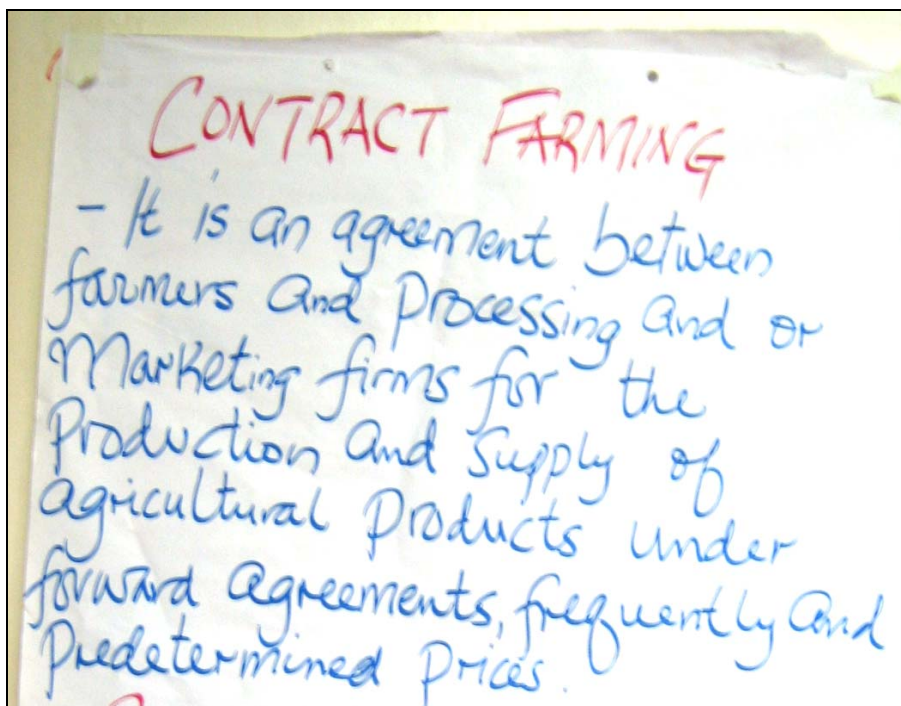 CONTRACT FARMING
- It is an agreement between
farmers and Processing and or
Marketing firms for the
Production and Supply of
agricultural Products under
forward agreements, frequently and
Predetermined Prices.